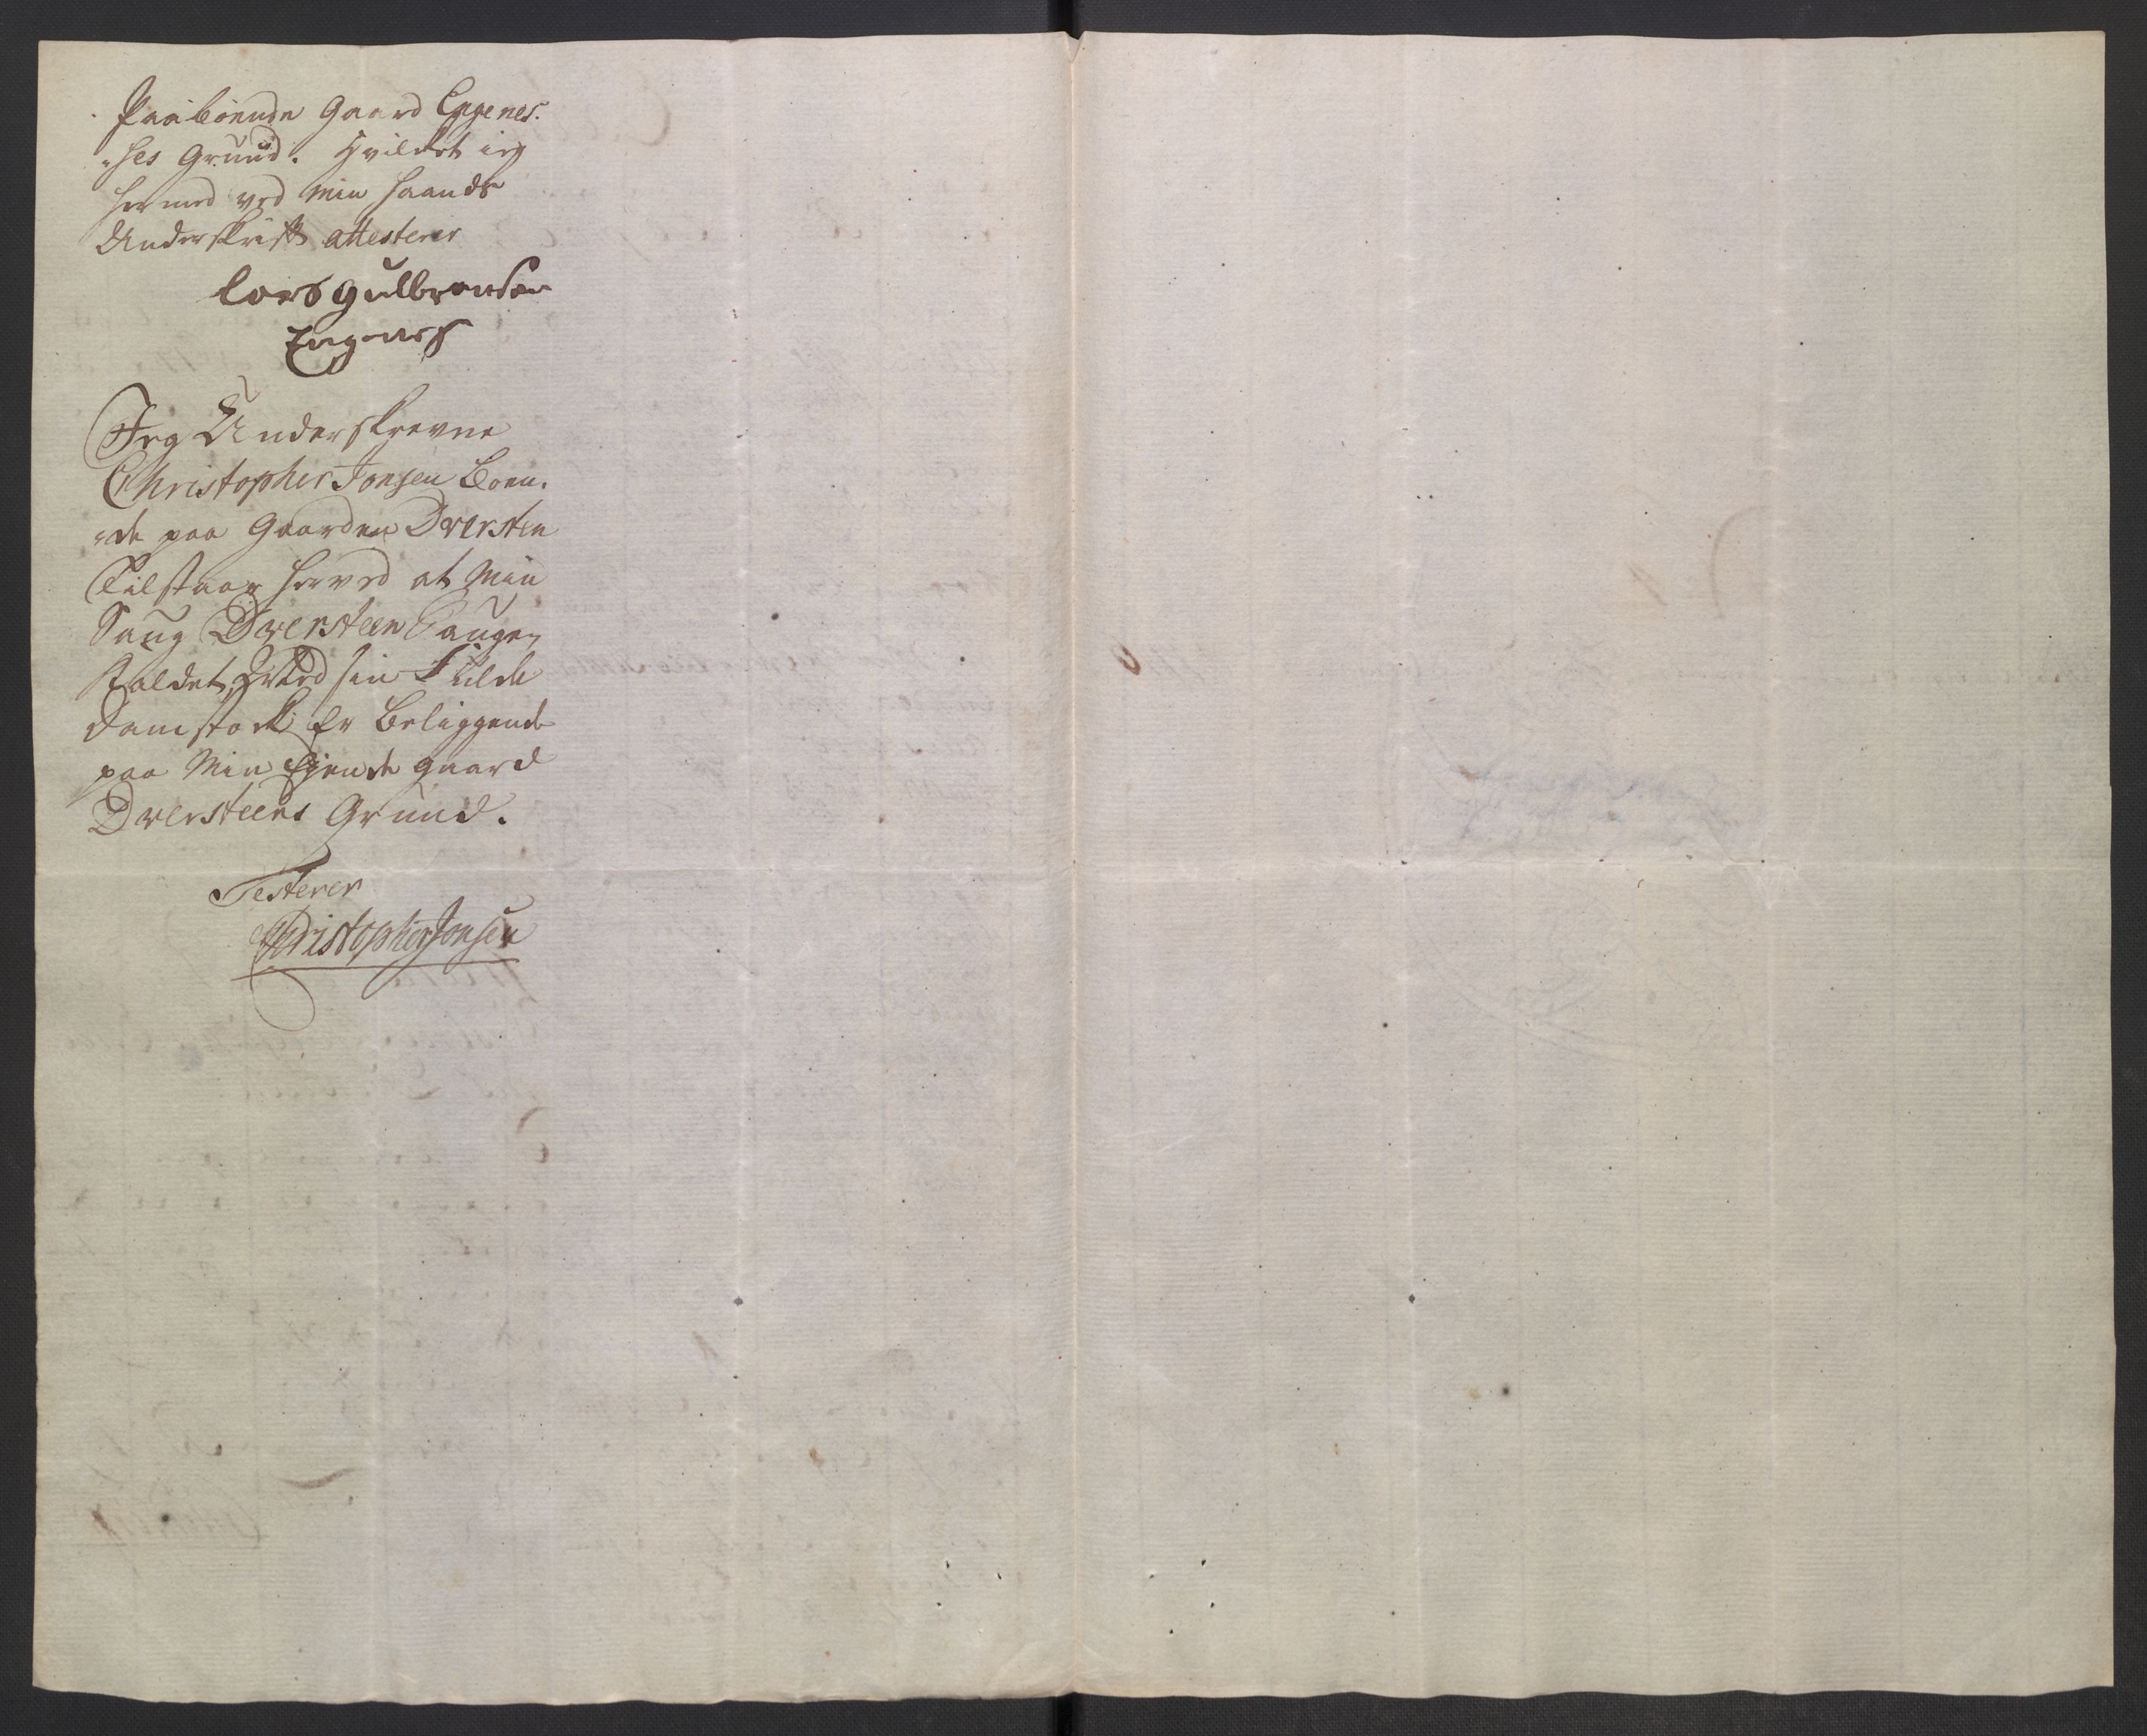 Paaboende Gaard Engenes-
-ses Gruud. Hvilket ieg
hermed ved min Haands
Underskrift attesterer
Lars gulbransen
Engenes
Jeg Underskrevne
Christopher Jonsen Boen-
-de paa Gaarden Dversten
Tilstaar herved at Min
Saug Dversteen Saugen
Kaldet, med sin Fulde
Damstock Er Beliggende
paa Min Ejende gaard
Dversteens Grund.
Testerer
Christopher Jonsen